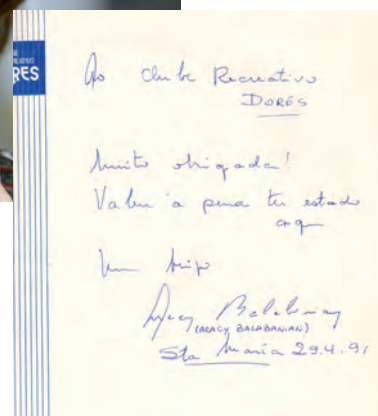 DE
REATIVO
RES
Ao Clube Recreativo
DORES
Muito obrigada!
Valeu a pena ter estado
aqui
Um beijo
Aracy Balabanian
(ARACY BALABANIAN)
Sta Maria 29.4.91